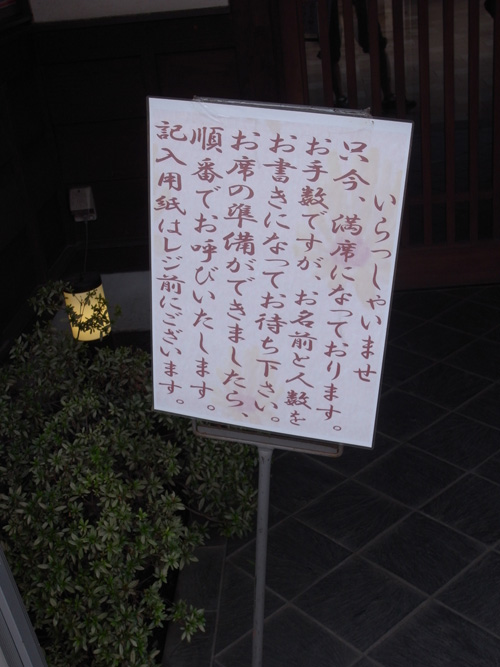 いらっしゃいませ
只今、満席になっております。
お手数ですが、お名前と人数を
お書きになってお待ち下さい。
お席の準備ができましたら、
順番でお呼びいたします。
記入用紙はレジ前にございます。